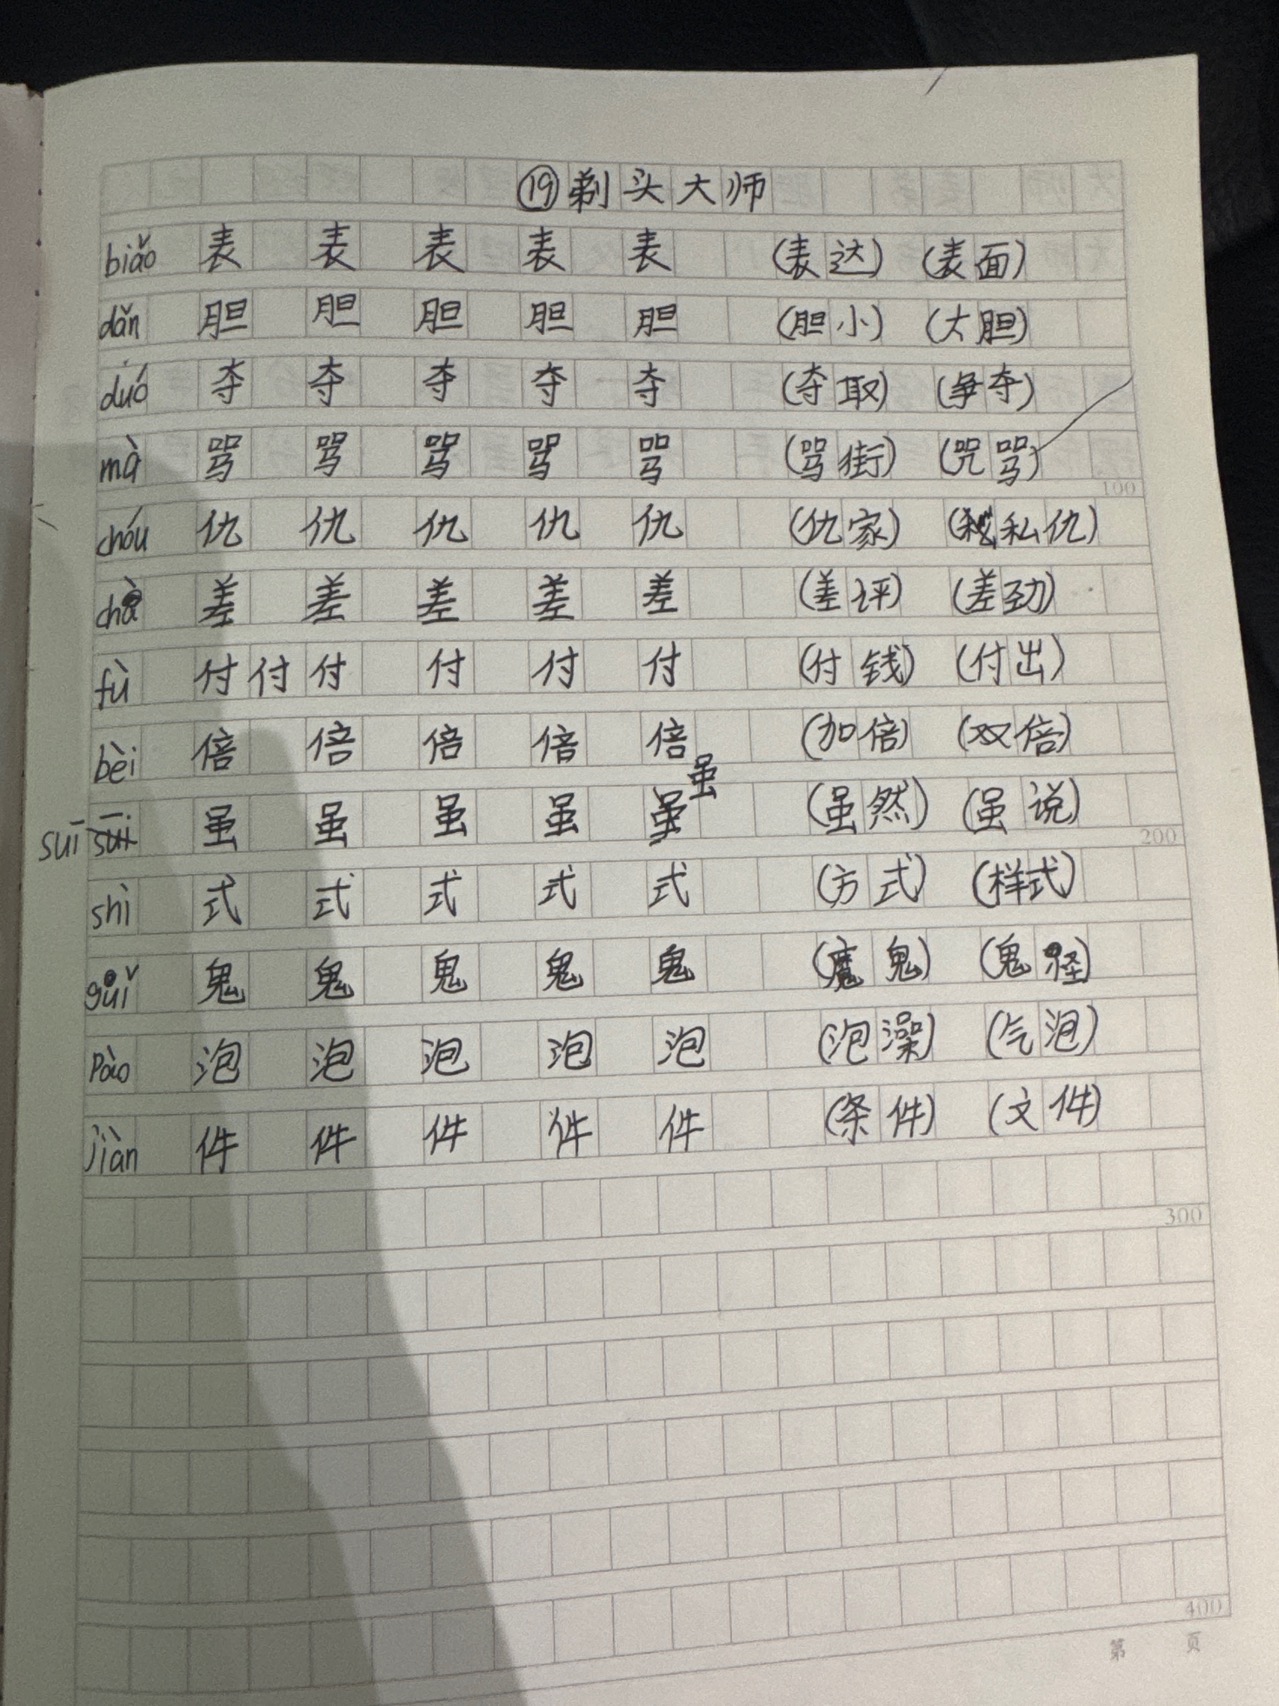 ⑲剃头大师
biǎo 表 表 表 表 表 (表达) (表面)
dǎn 胆 胆 胆 胆 胆 (胆小) (大胆)
duó 夺 夺 夺 夺 夺 (夺取) (争夺)
mà 骂 骂 骂 骂 骂 (骂街) (咒骂)
100
chóu 仇 仇 仇 仇 仇 (仇家) (私仇)
chà 差 差 差 差 差 (差评) (差劲)
fù 付 付 付 付 付 付 (付钱) (付出)
bèi 倍 倍 倍 倍 倍 (加倍) (双倍)
suī suī 虽 虽 虽 虽 虽 虽 (虽然) (虽说)
200
shì 式 式 式 式 式 (方式) (样式)
guǐ 鬼 鬼 鬼 鬼 鬼 (魔鬼) (鬼怪)
pào 泡 泡 泡 泡 泡 (泡澡) (气泡)
jiàn 件 件 件 件 件 (条件) (文件)
300
400
第 页